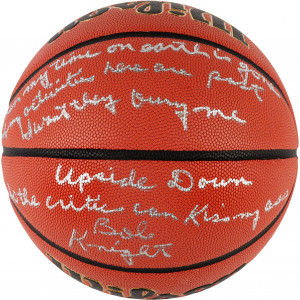 my time on earth is gone
my activities here are past
I want they bury me
Upside Down
the critic can Kiss my ass
Bob
Knight